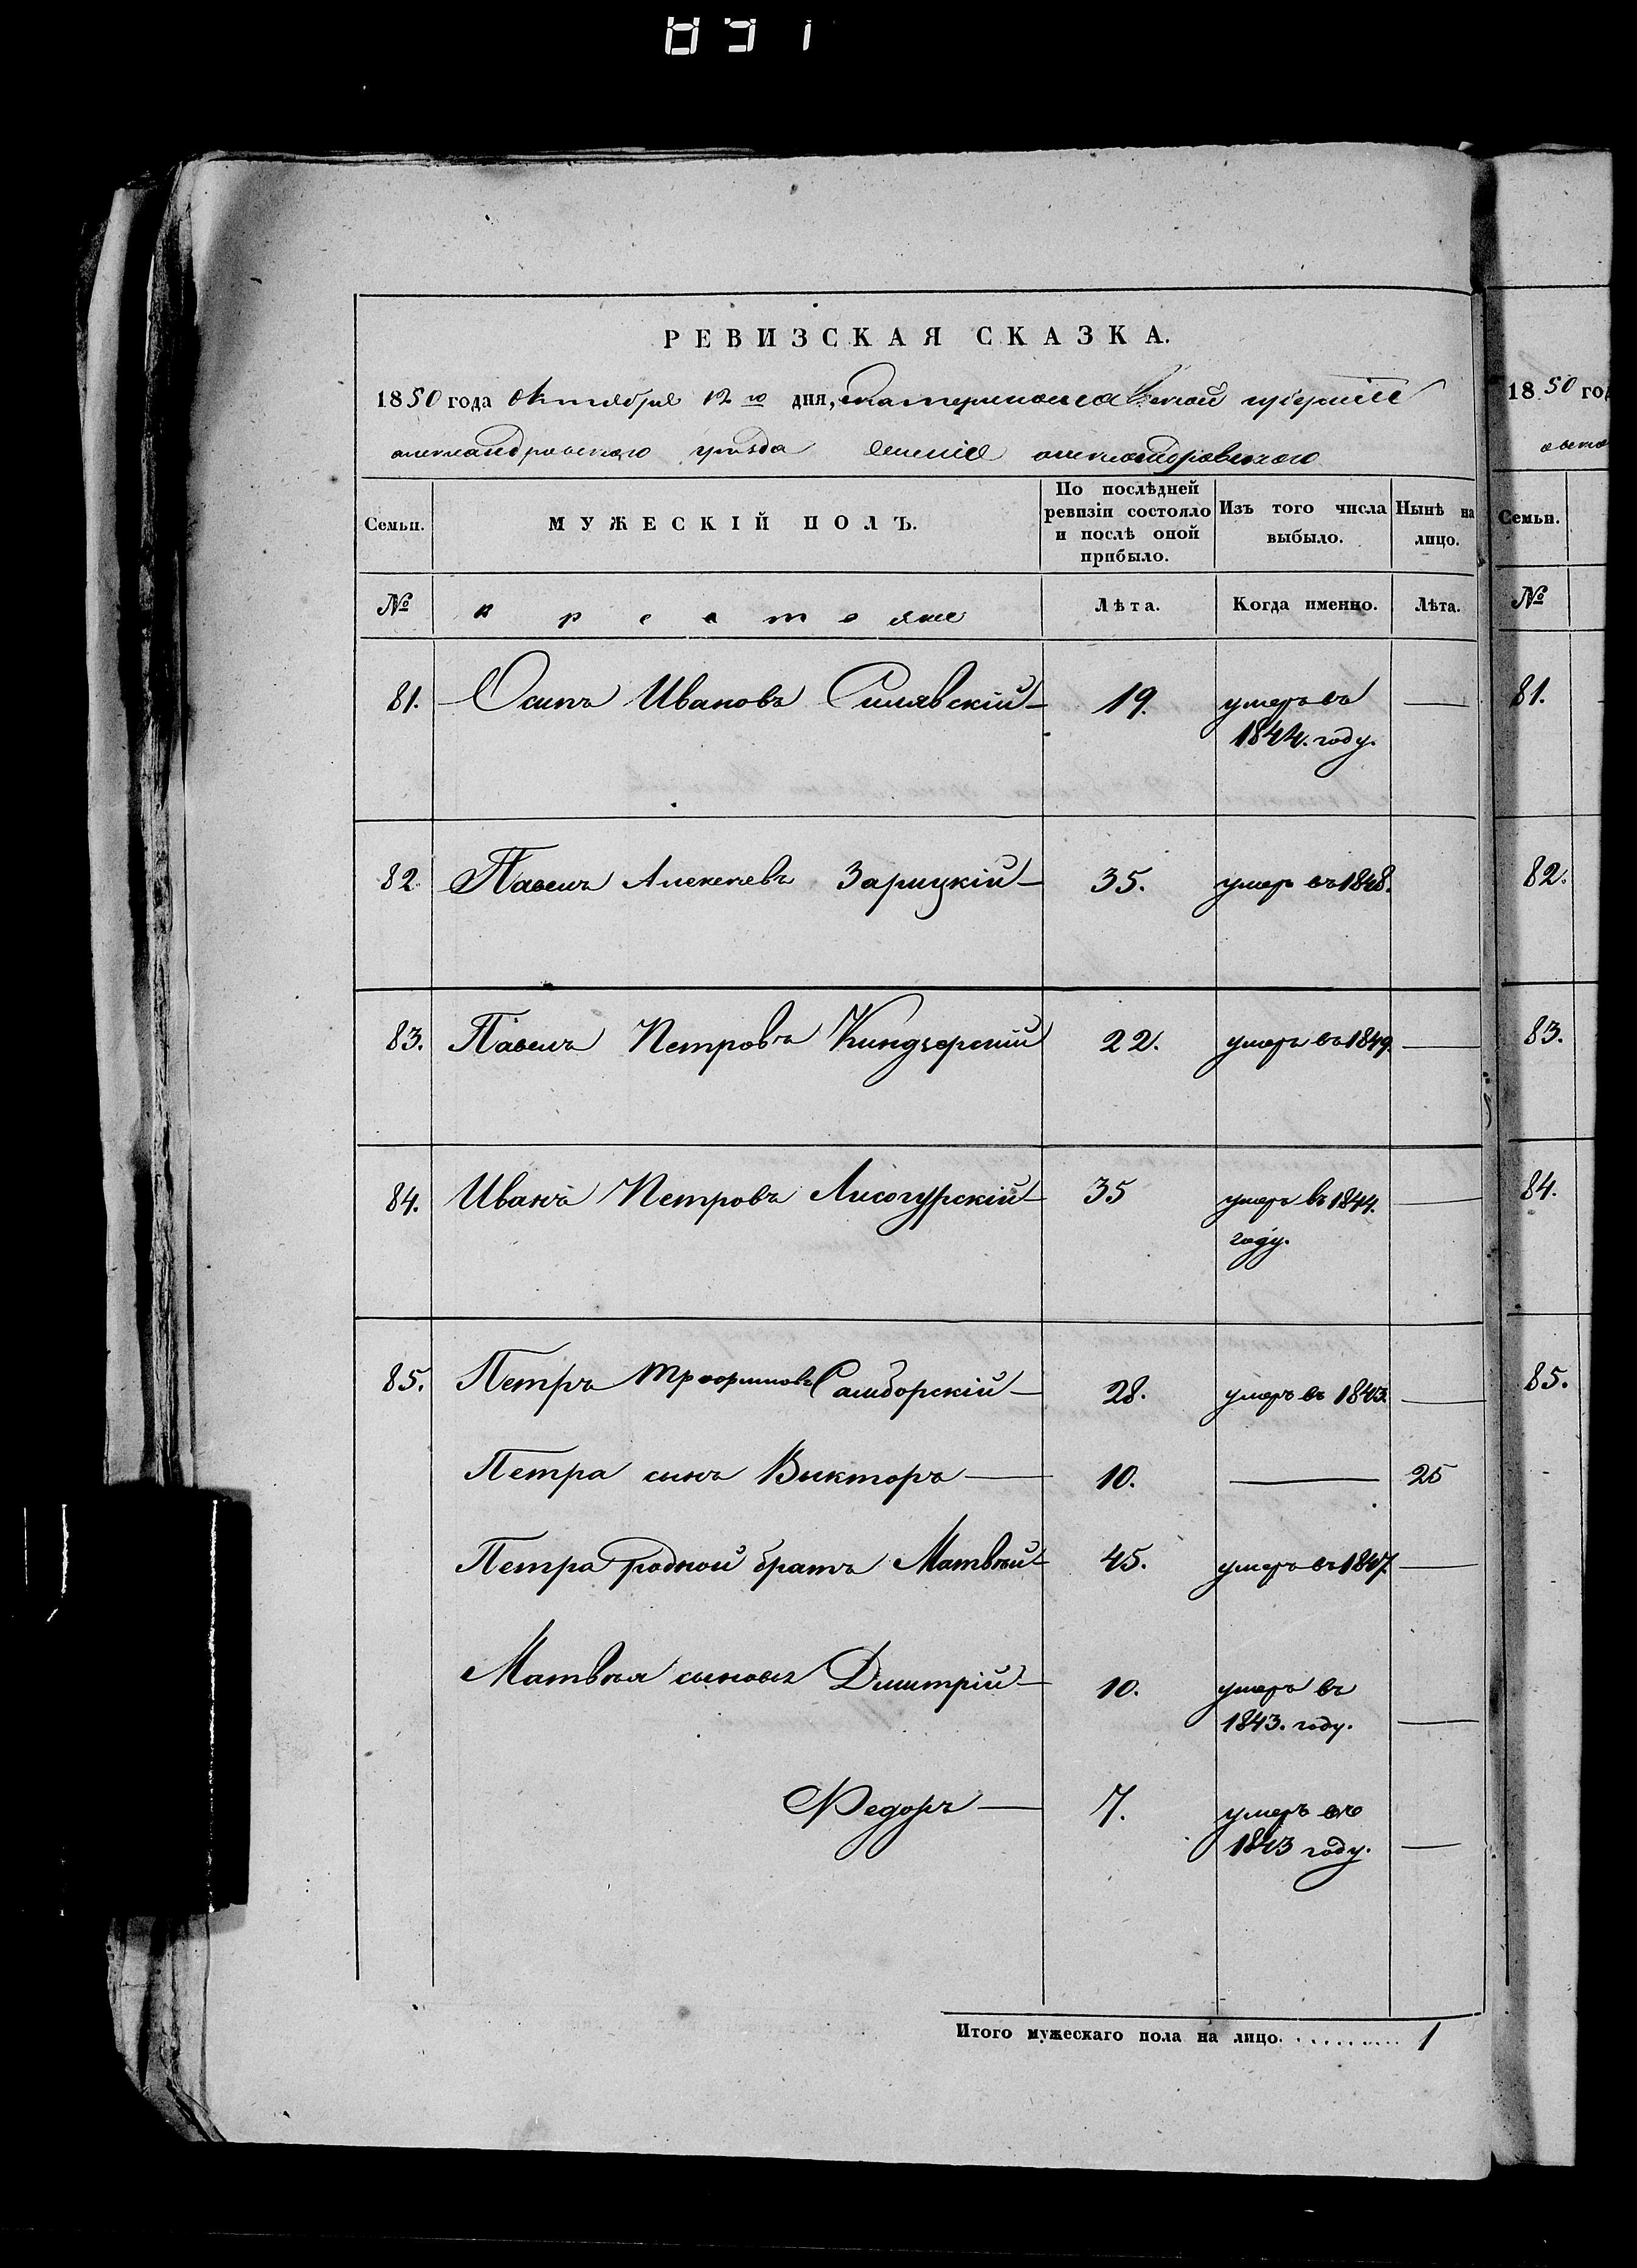 РЕВИЗСКАЯ СКАЗКА.
1850 года Октября 12го дня, Екатеринославской губерніи
александровского уѣзда имѣнія александровского
Семьи. МУЖЕСКІЙ ПОЛЪ. По послѣдней ревизіи состояло и послѣ оной прибыло. Изъ того числа выбыло. Нынѣ на лицо.
№ крестьяне Лѣта. Когда именно. Лѣта.
81. Осипъ Ивановъ Силявскій — 19. умеръ въ —
1844. году.
82. Павелъ Алексѣевъ Зарицкій — 35. умеръ въ 1848.
83. Павелъ Петровъ Киндзерскій 22. умеръ въ 1849. —
84. Иванъ Петровъ Лисогурскій — 35 умеръ въ 1844. —
году.
85. Петръ Трофимовъ Самборскій — 28. умеръ въ 1843. —
Петра сынъ Викторъ — 10. — 25
Петра родной братъ Матвѣй — 45. умеръ въ 1847. —
Матвѣя сыновья Дмитрій — 10. умеръ въ
1843. году. —
Федоръ — 7. умеръ въ
1843 году. —
Итого мужескаго пола на лицо. . . . . . . . . . 1
1850 год
Семьи.
№
81.
82.
83.
84.
85.